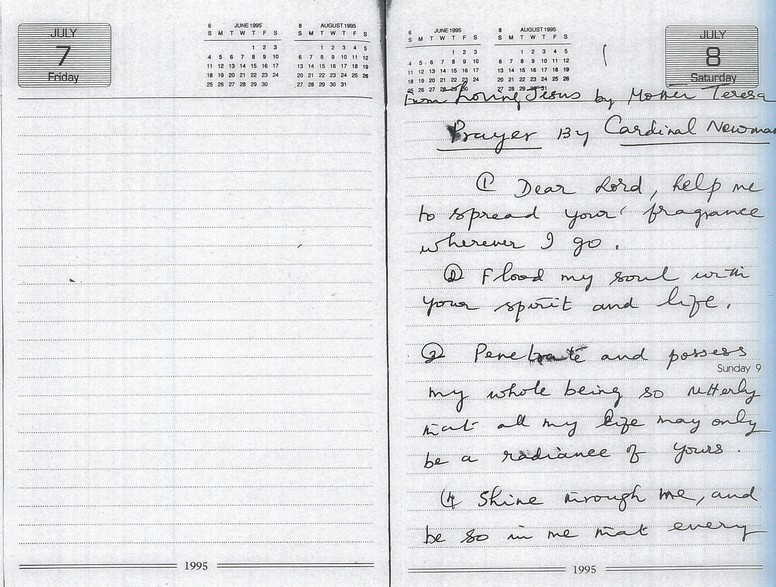 JULY
7
Friday
6 JUNE 1995
S M T W T F S
1 2 3
4 5 6 7 8 9 10
11 12 13 14 15 16 17
18 19 20 21 22 23 24
25 26 27 28 29 30
8 AUGUST 1995
S M T W T F S
1 2 3 4 5
6 7 8 9 10 11 12
13 14 15 16 17 18 19
20 21 22 23 24 25 26
27 28 29 30 31
1995
6 JUNE 1995
S M T W T F S
1 2 3
4 5 6 7 8 9 10
11 12 13 14 15 16 17
18 19 20 21 22 23 24
25 26 27 28 29 30
8 AUGUST 1995
S M T W T F S
1 2 3 4 5
6 7 8 9 10 11 12
13 14 15 16 17 18 19
20 21 22 23 24 25 26
27 28 29 30 31
1
JULY
8
Saturday
From Loving Jesus by Mother Teresa
Prayer By Cardinal Newman
① Dear Lord, help me
to spread your fragrance
wherever I go.
② Flood my soul with
your spirit and life.
③ Penetrate and possess
Sunday 9
my whole being so utterly
that all my life may only
be a radiance of yours.
④ Shine through me, and
be so in me that every
1995